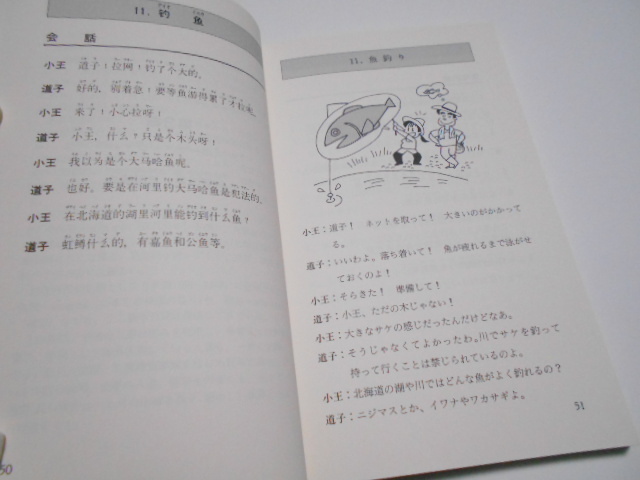 11. 钓 鱼
会 話
小王 道子！拉网！钓了个大的。
道子 好的，别着急！要等鱼游得累了才拉来。
小王 来了！小心拉呀！
道子 小王，什么？只是个木头呀！
小王 我以为是个大马哈鱼呢。
道子 也好。要是在河里钓大马哈鱼是犯法的。
小王 在北海道的湖里河里能钓到什么鱼？
道子 虹鳟什么的，有嘉鱼和公鱼等。
50
11. 魚釣り
小王：道子！ ネットを取って！ 大きいのがかかって
る。
道子：いいわよ。落ち着いて！ 魚が疲れるまで泳がせ
ておくのよ！
小王：そらきた！ 準備して！
道子：小王、ただの木じゃない！
小王：大きなサケの感じだったんだけどなあ。
道子：そうじゃなくてよかったわ。川でサケを釣って
持って行くことは禁じられているのよ。
小王：北海道の湖や川ではどんな魚がよく釣れるの？
道子：ニジマスとか、イワナやワカサギよ。
51